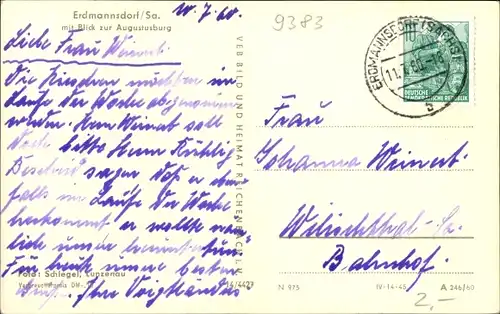 Erdmannsdorf/Sa.
mit Blick zur Augustusburg
10.7.60.
Liebe Frau Weinert.
Die Kirschen möchten im
Laufe der Woche abgenommen
werden. Herr Weinert soll
doch bitte Herrn
Bescheid sagen daß er eben-
falls im Laufe der Woche
er wollte
Für heute unsere besten
Ihre Voigtländers
Foto: Schlegel, Lunzenau
Verbraucherpreis DM
VEB BILD UND HEIMAT REICHENBACH I. V.
9383
ERDMANNSDORF (SACHS)
11.7.60.-18
a
10
DEUTSCHE
DEMOKRATISCHE REPUBLIK
Frau
Johanna Weinert.
Wilischthal-Sa.
Bahnhof.
N 973
IV-14-45
A 246/60
2,-